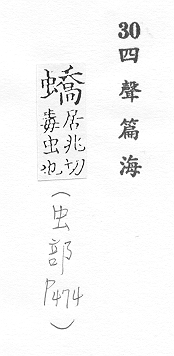 30 四聲篇海
蟜
居兆切
毒虫也
（虫部 P474）